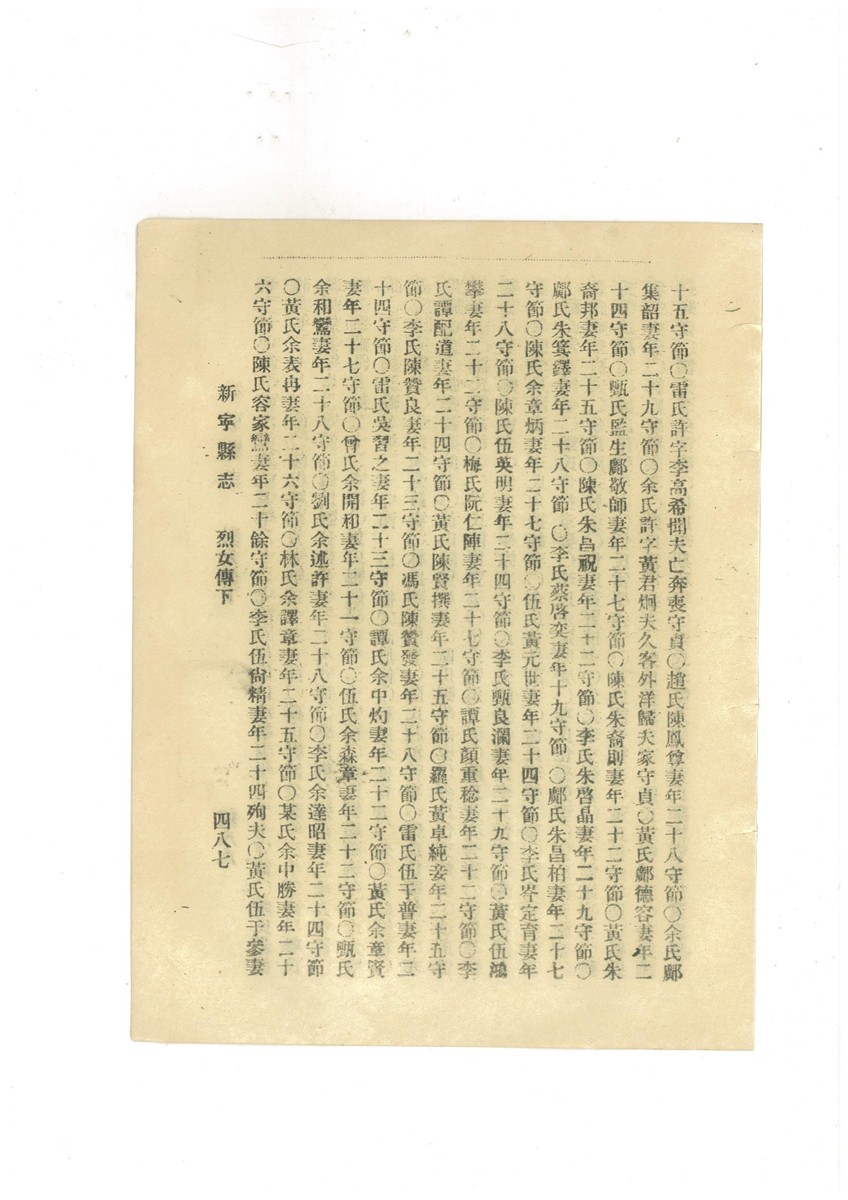 十五守節〇雷氏許字李高希聞夫亡奔喪守貞〇趙氏陳鳳尊妻年二十八守節〇余氏鄺
集韶妻年二十九守節〇余氏許字黃君炯夫久客外洋歸夫家守貞〇黃氏鄺德容妻年二
十四守節〇甄氏監生鄺敬師妻年二十七守節〇陳氏朱裔則妻年二十二守節〇黃氏朱
裔邦妻年二十五守節〇陳氏朱昌祝妻年二十二守節〇李氏朱啓晶妻年二十九守節〇
鄺氏朱箕鐸妻年二十八守節〇李氏蔡啓奕妻年十九守節〇鄺氏朱昌柏妻年二十七
守節〇陳氏余章炳妻年二十七守節〇伍氏黃元世妻年二十四守節〇李氏岑定育妻年
二十八守節〇陳氏伍英明妻年二十四守節〇李氏甄良瀾妻年二十九守節〇黃氏伍鴻
攀妻年二十二守節〇梅氏阮仁陣妻年二十七守節〇譚氏顏重稔妻年二十二守節〇李
氏譚配道妻年二十四守節〇黃氏陳賢撰妻年二十五守節〇羅氏黃卓純妾年二十五守
節〇李氏陳贊良妻年二十三守節〇馮氏陳贊發妻年二十八守節〇雷氏伍于普妻年二
十四守節〇雷氏吳習之妻年二十三守節〇譚氏余中灼妻年二十二守節〇黃氏余章賢
妻年二十七守節〇曾氏余開相妻年二十一守節〇伍氏余森章妻年二十二守節〇甄氏
余和鸞妻年二十八守節〇劉氏余述許妻年二十八守節〇李氏余達昭妻年二十四守節
〇黃氏余表冉妻年二十六守節〇林氏余譯章妻年二十五守節〇某氏余中勝妻年二十
六守節〇陳氏容家鸞妻年二十餘守節〇李氏伍尙精妻年二十四殉夫〇黃氏伍于參妻
新寧縣志 烈女傳下 四八七